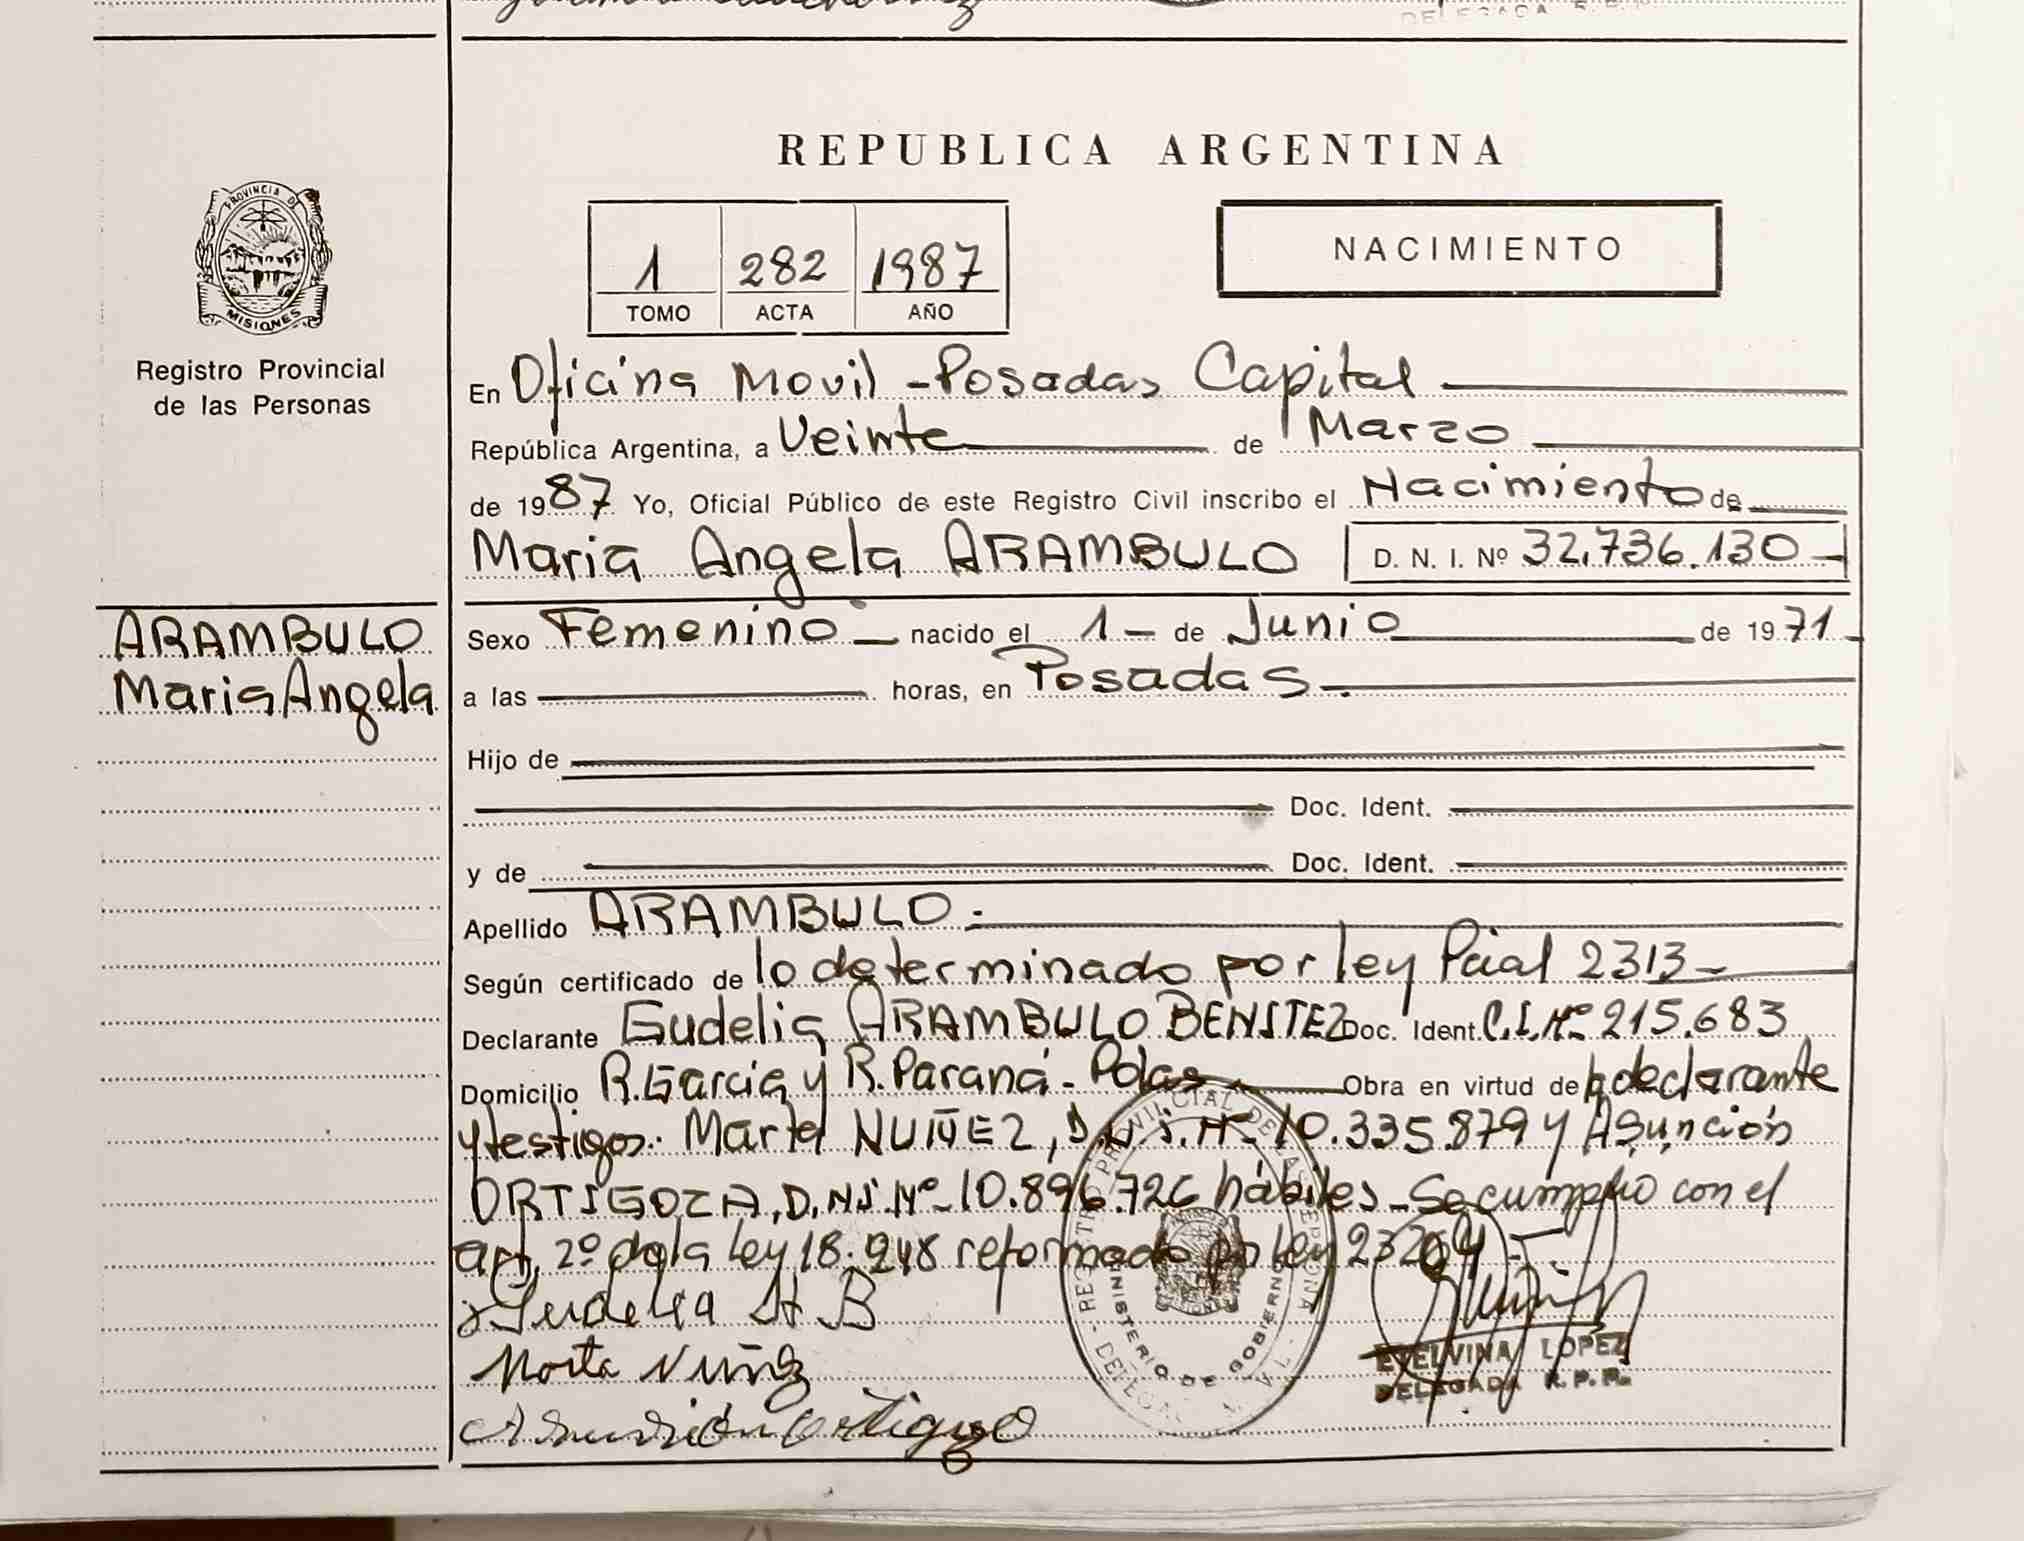 DELEGADA R.P.P.
REPUBLICA ARGENTINA
PROVINCIA D
MISIONES
Registro Provincial
de las Personas
1 282 1987
TOMO ACTA AÑO
NACIMIENTO
En Oficina Movil - Posadas Capital
República Argentina, a Veinte de Marzo
de 1987 Yo, Oficial Público de este Registro Civil inscribo el Nacimiento de
Maria Angela ARAMBULO D. N. I. Nº 32.736.130-
ARAMBULO
Maria Angela
Sexo Femenino - nacido el 1- de Junio de 1971
a las horas, en Posadas.
Hijo de
Doc. Ident.
y de Doc. Ident.
Apellido ARAMBULO.-
Según certificado de lo determinado por ley Pcial 2313-
Declarante Gudelia ARAMBULO BENITEZ Doc. Ident. C.I.Nº 215.683
Domicilio R. Garcia y R. Paraná - Pdas Obra en virtud de la declarante
y testigos: Marta NUÑEZ, D.N.I.Nº 10.335.879 y Asunción
ORTIGOZA, D.N.I.Nº 10.896.726 hábiles - Se cumplio con el
art. 2º de la Ley 18.248 reformado por ley 23264
Gudelia A B
Marta Nuñez
Asunción Ortigoza
REGISTRO PROVINCIAL DE LAS PERSONAS
MINISTERIO DE GOBIERNO
ETELVINA LOPEZ
DELEGADA R.P.P.